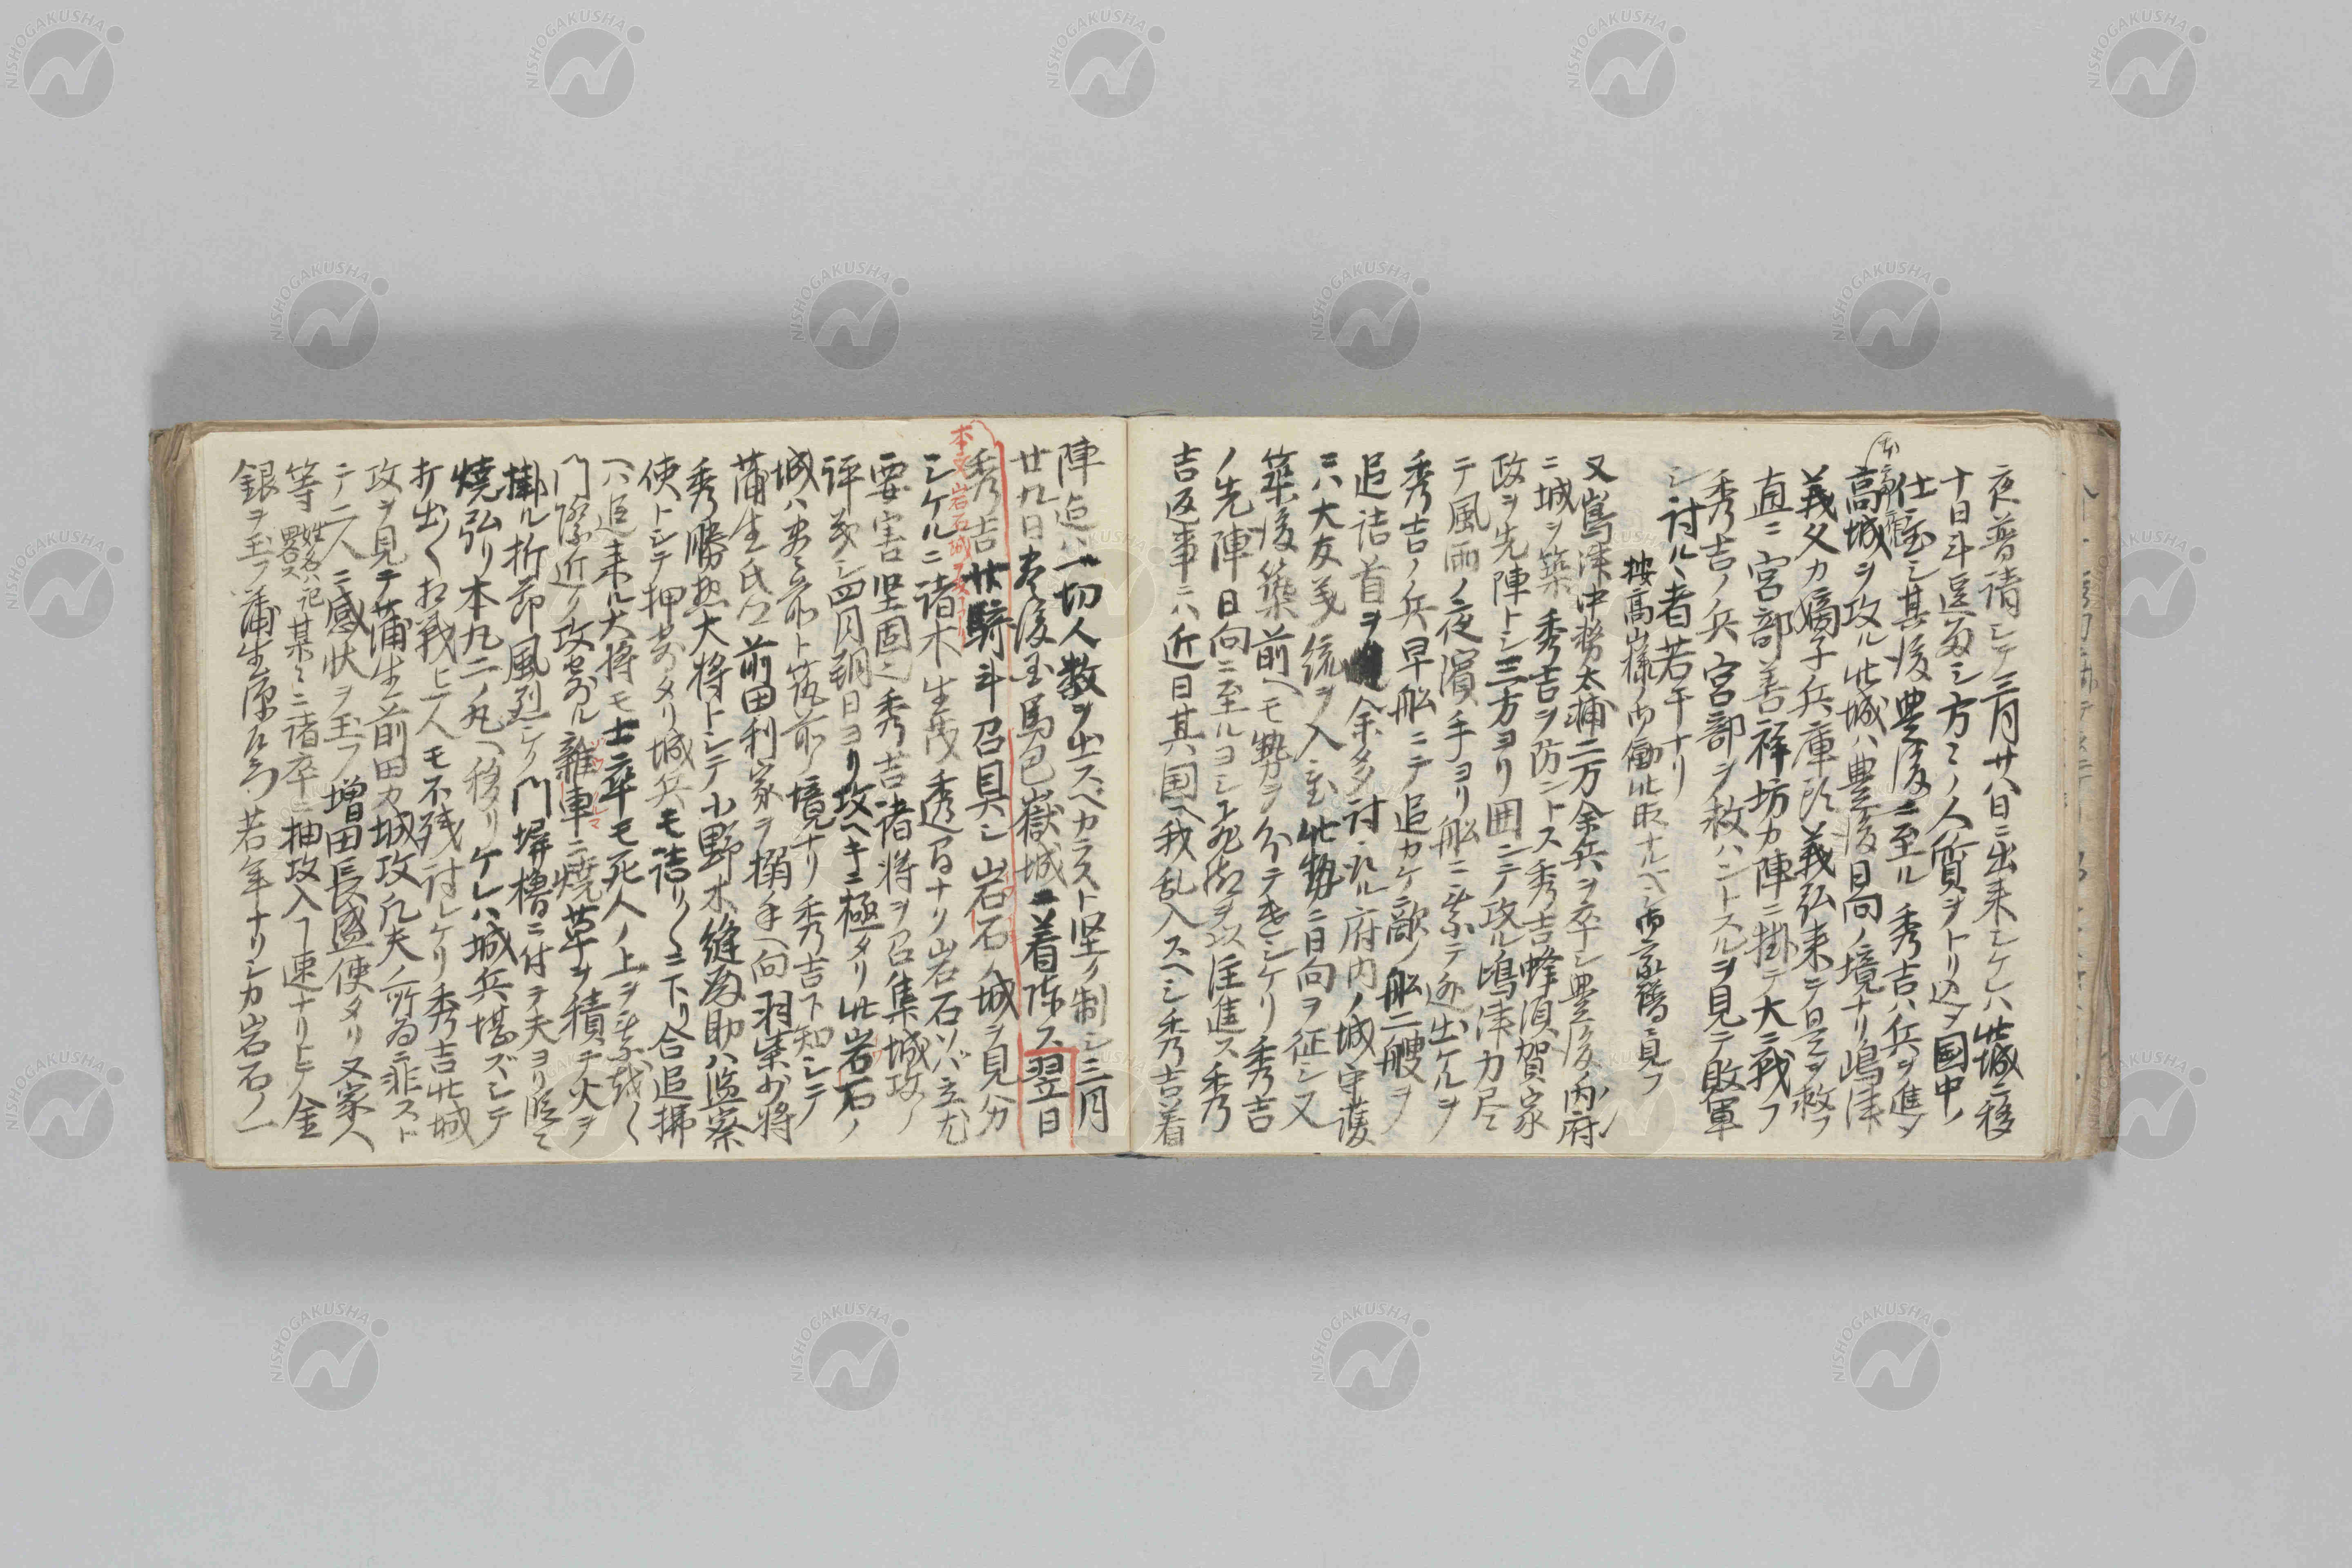 夜普請シテ三月廿八日ニ出来シケハ此城ニ移
十日斗逗留シ方々ノ人質ヲトリ近国中ノ
仕置シ其後豊後ニ至ル秀吉ハ兵ヲ進メ
高城ヲ攻ル此城ハ豊後日向ノ境ナリ嶋津
義久カ嫡子兵庫頭義弘来テ是ヲ救フ
直ニ宮部善祥坊カ陣ニ掛テ大ニ戦フ
秀吉ノ兵宮部ヲ救ハントスルヲ見テ敗軍
シ討ルヽ者若干ナリ
按高山様御働此取ナルヘシ
又嶌津中務太輔二万余兵ヲ卒シ豊後府内
ニ城ヲ築秀吉ヲ防ントス秀吉蜂須賀家
政ヲ先陣トシ三方ヨリ囲ニテ攻ル嶋津力尽
テ風雨ノ夜濱手ヨリ船ニ乗テ迯出ケルヲ
秀吉ノ兵早船ニテ追カケ敵ノ船二艘ヲ
追詰首ヲ余多討取ル府内ノ城守護
ニハ大友義統ヲ入置此勢ニ日向ヲ征シ又
築後築前ヘモ勢ヲ分テ遣シケリ秀吉
ノ先陣日向ニ至ルヨシ飛脚ヲ以注進ス秀
吉返事ニハ近日其国ヘ我乱入スヘシ秀吉着
陣迠ハ一切人数ヲ出スヘカラスト堅ク制シ三月
廿九日豊後国馬ケ嶽城ニ着陣ス翌日
秀吉廿騎斗召具シ岩石ノ城ヲ見分
本文岩石城
シケルニ諸木生茂透間ナリ岩石ソバ立尤
要害堅固也秀吉諸将ヲ召集城攻ノ
評義シ四月朔日ヨリ攻ヘキニ極タリ此岩石ノ
城ハ豊前ト筑前ノ境ナリ秀吉下知シテ
蒲生氏郷前田利家ヲ搦手ヘ向羽柴少将
秀勝惣大将トシテ小野木縫殿助ハ監察
使トシテ押寄タリ城兵モ詰リ〱ニ下リ合追拂
ヘハ追来ル大将モ士卒モ死人ノ上ヲ乗越〱
門際近ク攻寄ル雜車ニ焼草ヲ積テ火ヲ
掛ル折節風烈シク門塀櫓ニ付テ夫ヨリ
焼弘リ本丸二ノ丸ヘ移リケレハ城兵堪ズシテ
打出〱相義ヒ一人モ不残討レケリ秀吉此城
攻ヲ見テ蒲生前田カ城攻凡夫ノ所為ニ非スト
テ二人ニ感状ヲ玉フ増田長盛使タリ又家人
等姓名ハ記畧ス某々ニ諸卒ニ抽攻入フ速ナリトテ金
銀ヲ玉フ蒲生源左衛門若年ナリシカ岩石ノ一